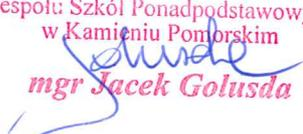 espołu Szkół Ponadpodstawow
w Kamieniu Pomorskim
mgr Jacek Golusda